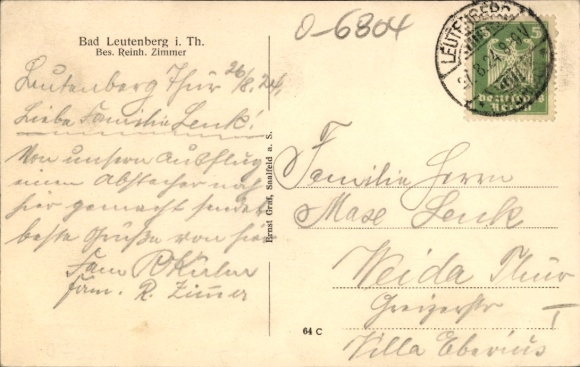 0-6804
Bad Leutenberg i. Th.
Bes. Reinh. Zimmer
LEUTENBERG
5 5
Deutsches
Reich
Leutenberg Thür 26/8.24.
Liebe Familie Lenk!
Von unsern Ausflug
einen Abstecher nach
hier gemacht sendet
beste Grüße von hier
Fam
Fam. R. Zimmer
Ernst Graf, Saalfeld a. S.
Familie Herrn
Max Lenk
Weida Thür
Greizerstr
Villa Eberius
64 C